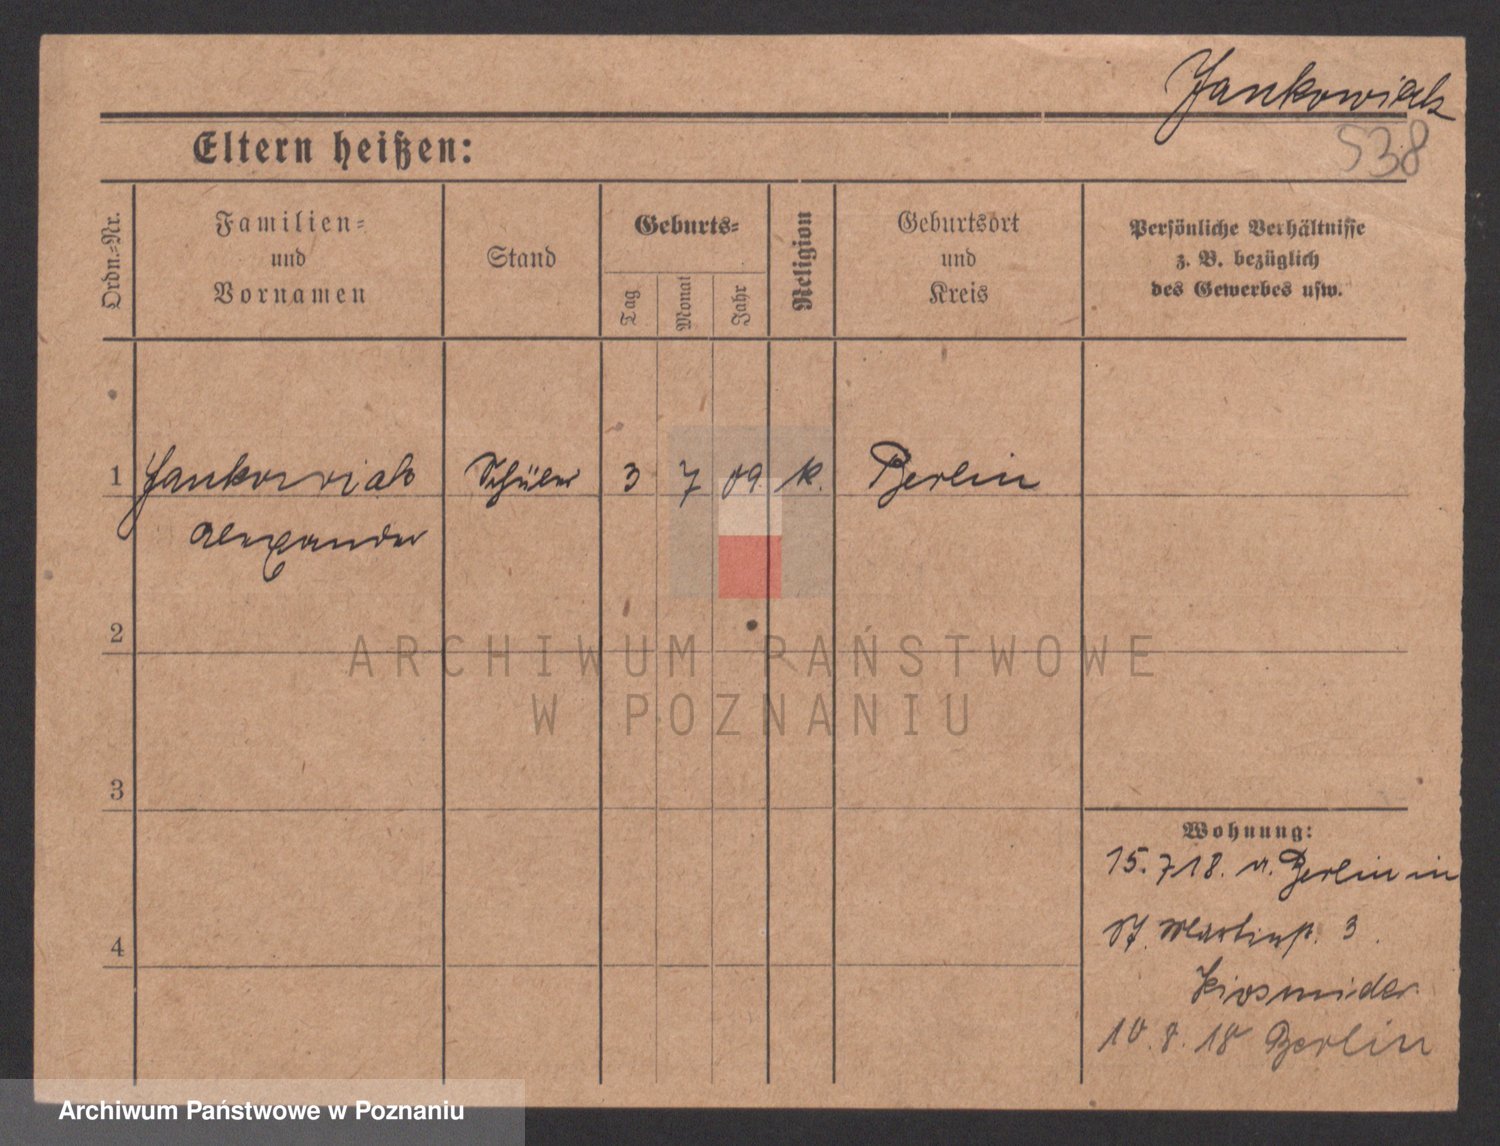 Jankowiak
538
Eltern heißen:
Ordn.-Nr.
Familien-
und
Vornamen
Stand
Geburts-
Tag
Monat
Jahr
Religion
Geburtsort
und
Kreis
Persönliche Verhältnisse
z. B. bezüglich
des Gewerbes usw.
1 Jankowiak Schüler 3 7 09 k. Berlin
Alexander
2
ARCHIWUM PAŃSTWOWE
W POZNANIU
3
Wohnung:
15.7.18. v. Berlin in
St. Martinstr. 3.
4
10.8.18 Berlin
Archiwum Państwowe w Poznaniu